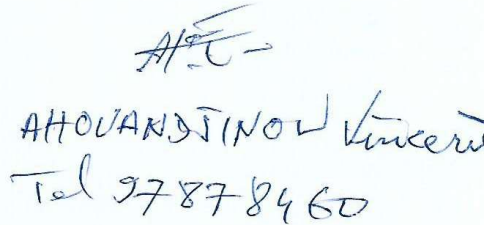 AHOUANDJINOU Vincent
Tel 97878460